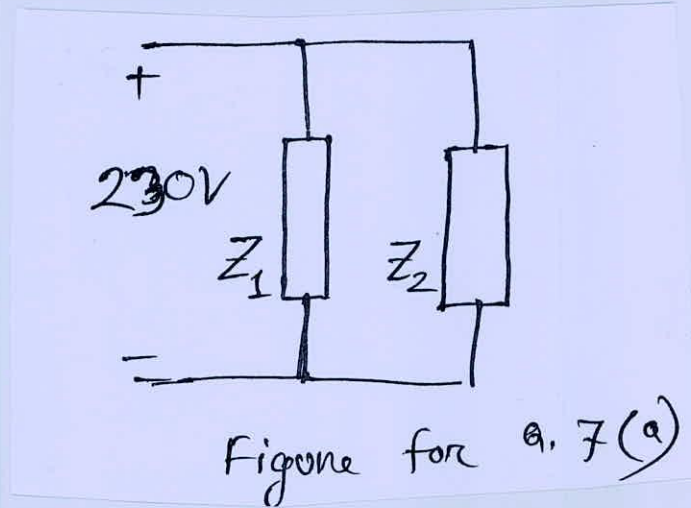 +
230V
Z1
Z2
−
Figure for Q. 7(a)